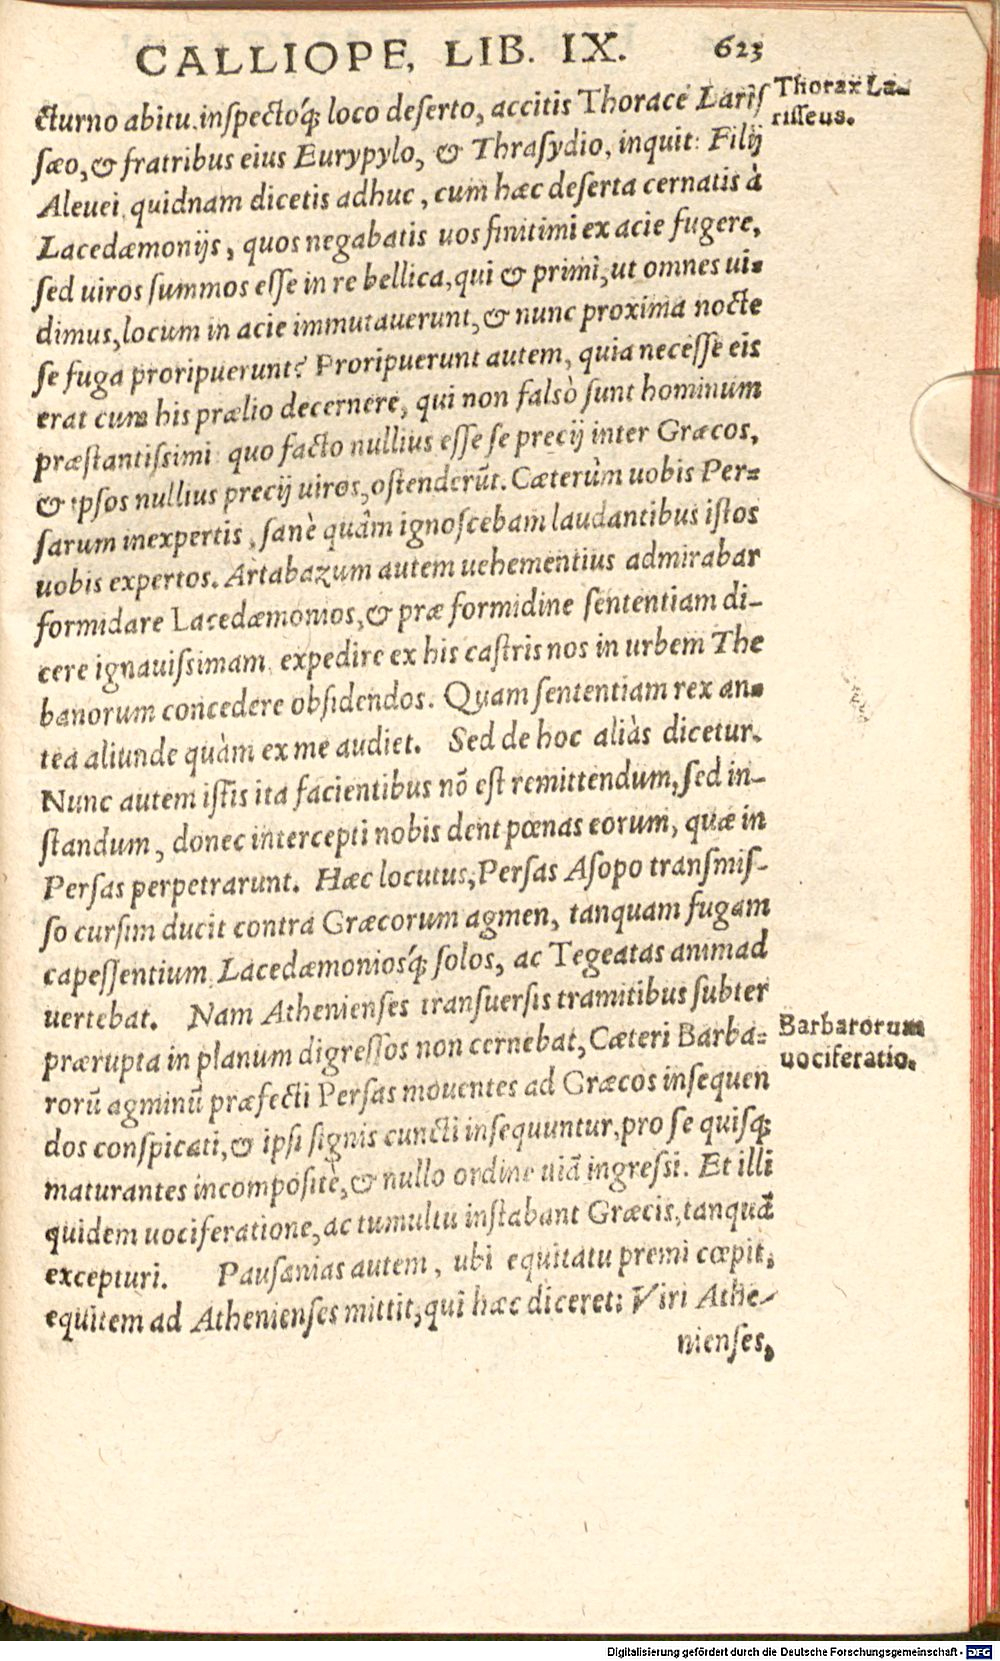 CALLIOPE, LIB. IX. 623
cturno abitu, inspectoq́; loco deserto, accitis Thorace Laris
sæo, & fratribus eius Eurypylo, & Thrasydio, inquit: Filij
Aleuei, quidnam dicetis adhuc, cum hæc deserta cernatis à
Lacedæmonijs, quos negabatis uos finitimi ex acie fugere,
sed uiros summos esse in re bellica, qui & primi, ut omnes ui-
dimus, locum in acie immutauerunt, & nunc proxima nocte
se fuga proripuerunt? Proripuerunt autem, quia necesse eis
erat cum his prælio decernere, qui non falsò sunt hominum
præstantissimi quo facto nullius esse se precij inter Græcos,
& ipsos nullius precij uiros, ostenderũt. Cæterùm uobis Per-
sarum inexpertis, sanè quàm ignoscebam laudantibus istos
uobis expertos. Artabazum autem uehementius admirabar
formidare Lacedæmonios, & præ formidine sententiam di-
cere ignauissimam, expedire ex his castris nos in urbem The
banorum concedere obsidendos. Quam sententiam rex an-
tea aliunde quàm ex me audiet. Sed de hoc aliàs dicetur.
Nunc autem istis ita facientibus nõ est remittendum, sed in-
standum, donec intercepti nobis dent pœnas eorum, quæ in
Persas perpetrarunt. Hæc locutus, Persas Asopo transmis-
so cursim ducit contra Græcorum agmen, tanquam fugam
capessentium, Lacedæmoniosq́; solos, ac Tegeatas animad
uertebat. Nam Athenienses transuersis tramitibus subter
prærupta in planum digressos non cernebat, Cæteri Barba-
rorũ agminũ præfecti Persas mouentes ad Græcos insequen
dos conspicati, & ipsi signis cuncti insequuntur, pro se quisq;
maturantes incompositè, & nullo ordine uiã ingressi. Et illi
quidem uociferatione, ac tumultu instabant Græcis, tanquã
excepturi. Pausanias autem, ubi equitatu premi cœpit,
equitem ad Athenienses mittit, qui hæc diceret: Viri Athe-
nienses,
Thorax La-
risseus.
Barbarorum
uociferatio.
Digitalisierung gefördert durch die Deutsche Forschungsgemeinschaft - DFG